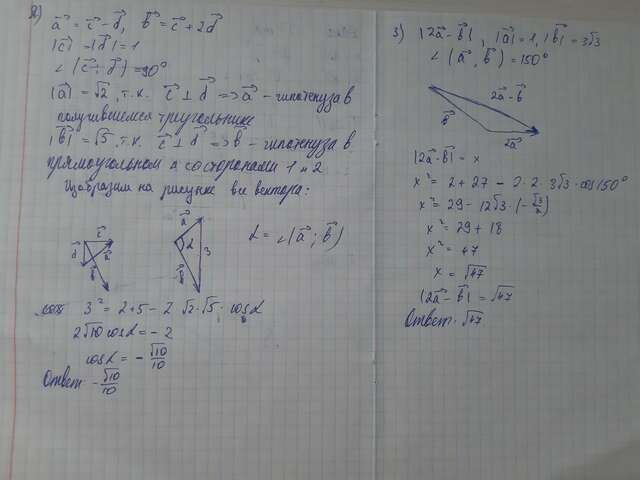 2) a⃗ = c⃗ - d⃗, b⃗ = c⃗ + 2d⃗
|c⃗| = |d⃗| = 1
∠(c⃗; d⃗) = 90°
|a⃗| = √2, т.к. c⃗ ⊥ d⃗ => a⃗ - гипотенуза в
получившемся треугольнике
|b⃗| = √5, т.к. c⃗ ⊥ d⃗ => b⃗ - гипотенуза в
прямоугольном △ со сторонами 1 и 2
Изобразим на рисунке все вектора:
c⃗
d⃗
a⃗
b⃗
a⃗
α
3
b⃗
α = ∠(a⃗; b⃗)
3² = 2+5 - 2 √2·√5 · cosα
2√10 cosα = -2
cosα = -√10/10
Ответ: -√10/10
3) |2a⃗ - b⃗|, |a⃗| = 1, |b⃗| = 3√3
∠(a⃗, b⃗) = 150°
2a⃗ - b⃗
b⃗
2a⃗
|2a⃗ - b⃗| = x
x² = 2 + 27 - 2·2·3√3·cos150°
x² = 29 - 12√3·(-√3/2)
x² = 29 + 18
x² = 47
x = √47
|2a⃗ - b⃗| = √47
Ответ: √47